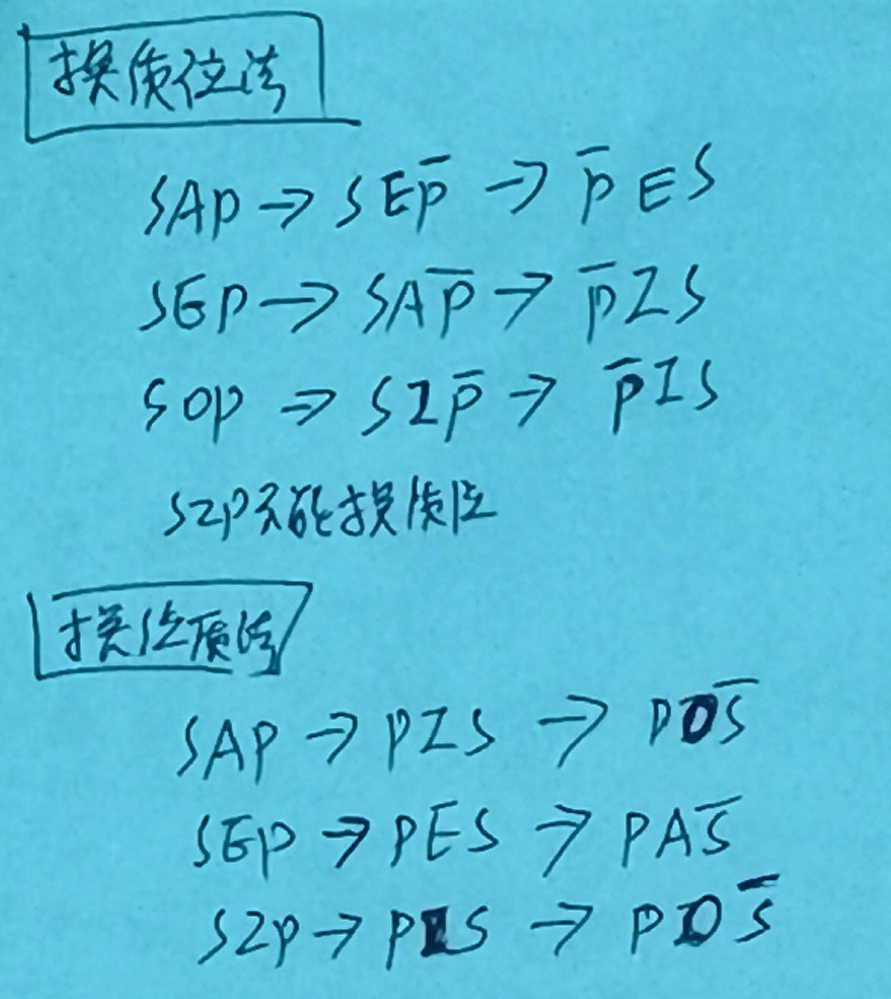 换质位法
SAP → SEP̅ → P̅ES
SEP → SAP̅ → P̅IS
SOP → SIP̅ → P̅IS
SIP不能换质位
换位质法
SAP → PIS → POS̅
SEP → PES → PAS̅
SIP → PIS → POS̅